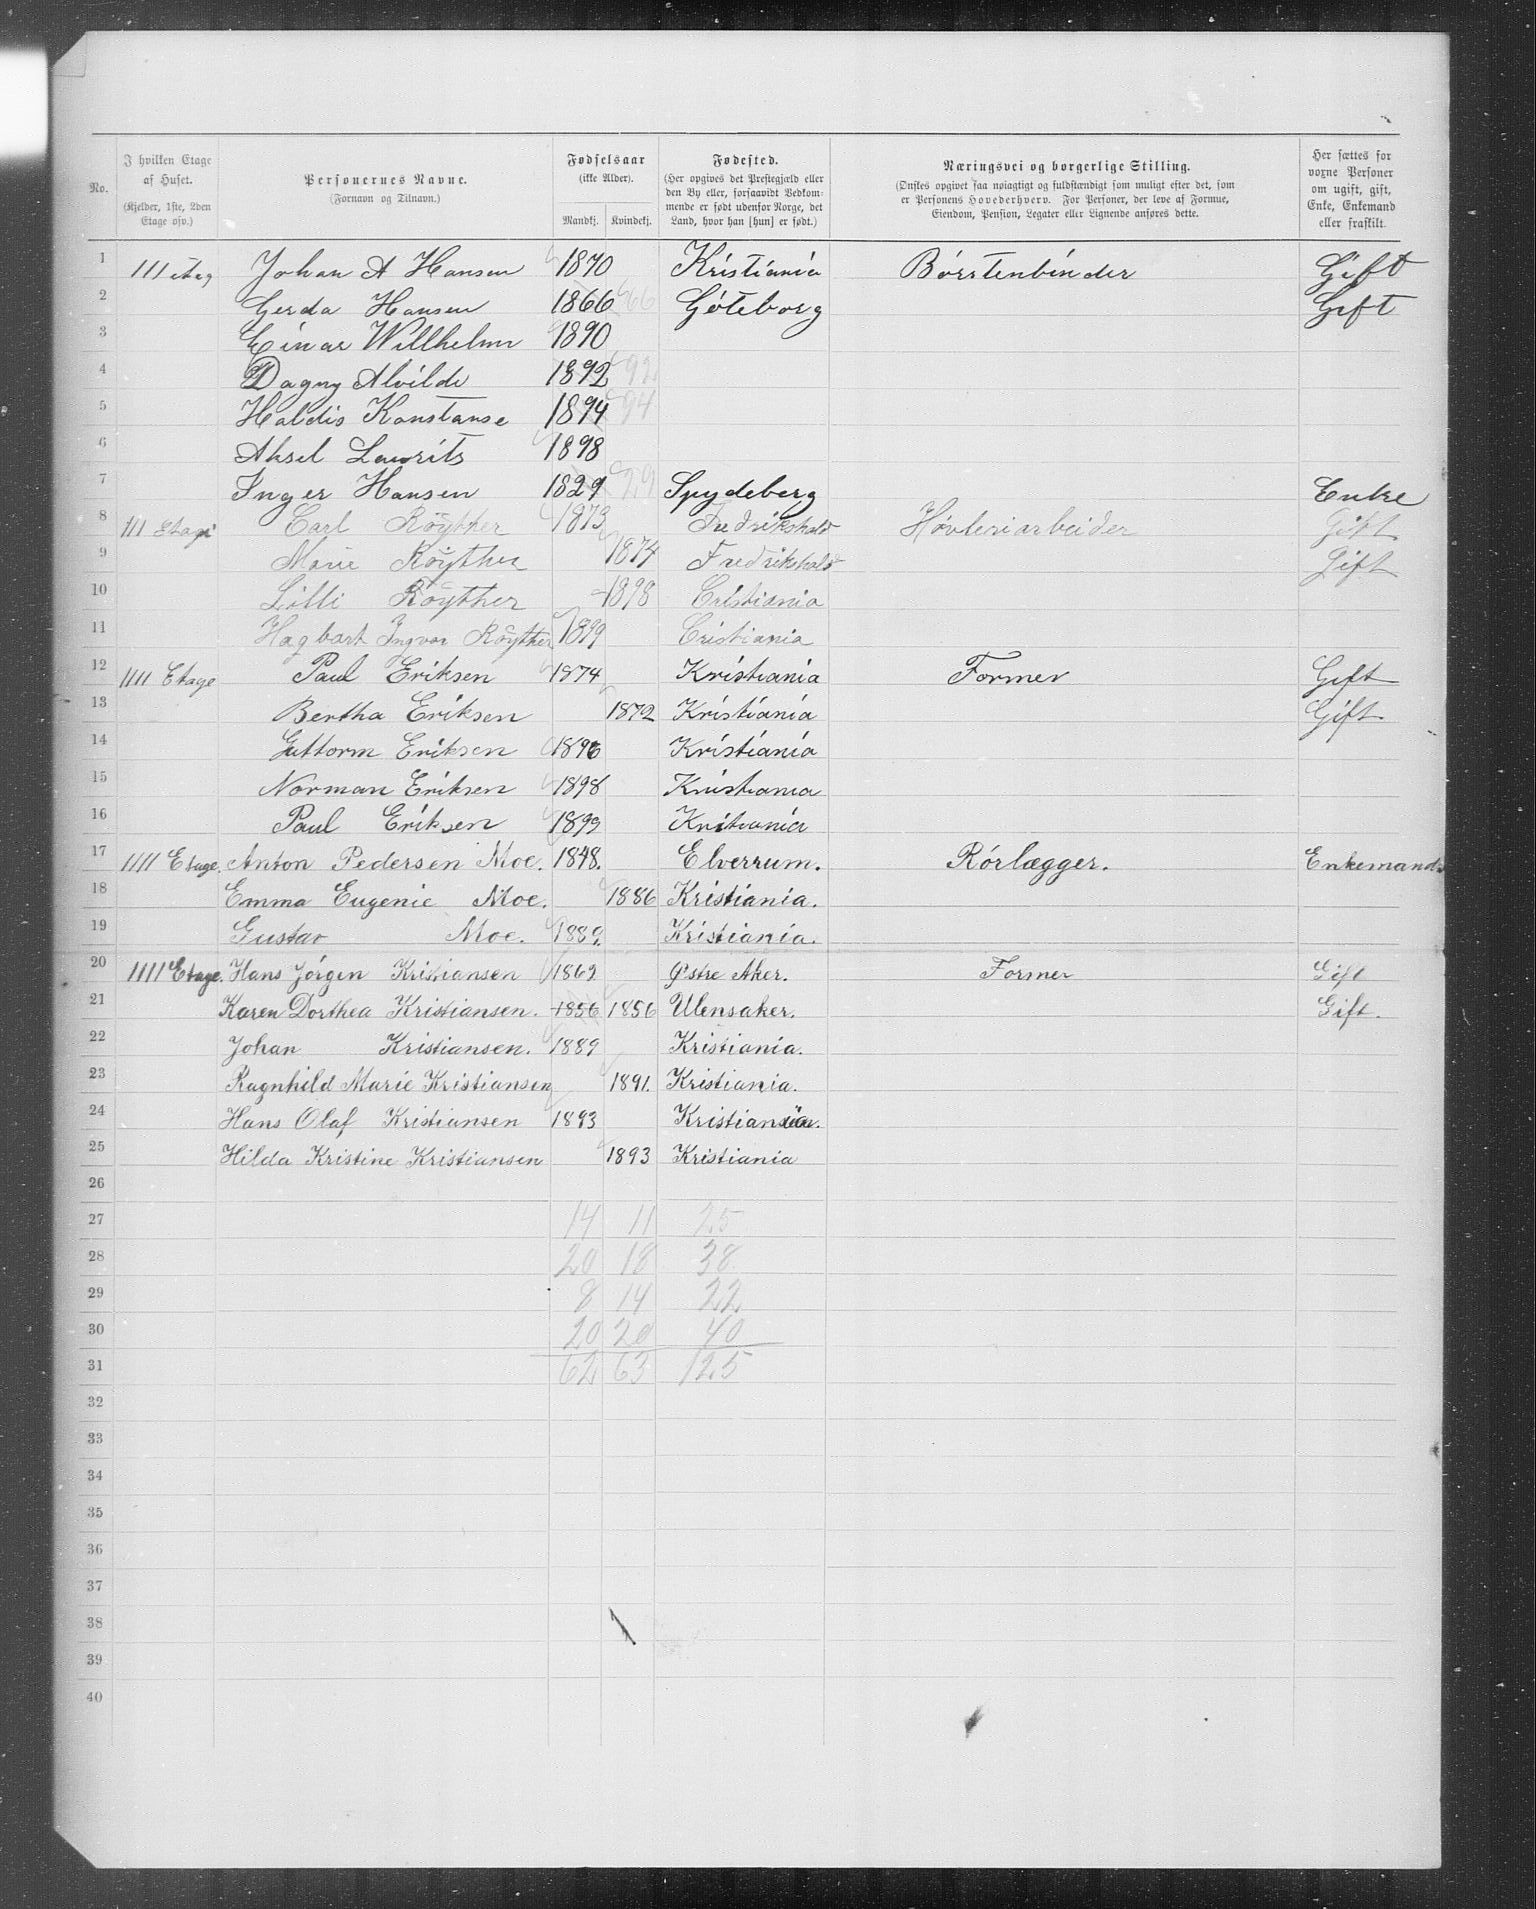 No.
I hvilken Etage af Huset.
(Kjelder, 1ste, 2den Etage osv.)
Personernes Navne.
(Fornavn og Tilnavn.)
Fødselsaar
(ikke Alder).
Mandkj. Kvindekj.
Fødested.
(Her opgives det Prestegjæld eller den By eller, forsaavidt Vedkommende er født udenfor Norge, det Land, hvor han [hun] er født.)
Næringsvei og borgerlige Stilling.
(Ønskes opgivet saa nøiagtigt og fuldstændigt som muligt efter det, som er Personens Hovederhverv. For Personer, der leve af Formue, Eiendom, Pension, Legater eller Lignende anføres dette.
Her sættes for voxne Personer om ugift, gift, Enke, Enkemand eller fraskilt.
1 111 etag Johan A Hansen 1870 Kristiania Börstenbinder Gift
2 Gerda Hansen 1866 66 Göteborg Gift
3 Einar Willhelm 1890
4 Dagny Alvilde 1892 92
5 Haldis Konstanse 1894 94
6 Aksel Lauritz 1898
7 Inger Hansen 1829 29 Spydeberg Enke
8 111 Etage Carl Röyther 1873 Fredrikshald Hövleriarbeider Gift
9 Marie Röyther 1874 Fredrikshald Gift
10 Lilli Röyther 1898 Cristiania
11 Hagbart Ingvar Röyther 1899 Cristiania
12 1111 Etage Paul Eriksen 1874 Kristiania Former Gift
13 Bertha Eriksen 1872 Kristiania Gift
14 Guttorm Eriksen 1896 Kristiania
15 Norman Eriksen 1898 Kristiania
16 Paul Eriksen 1899 Kritiania
17 1111 Etage. Anton Pedersen Moe. 1848. Elverrum. Rörlægger. Enkemand.
18 Emma Eugenie Moe. 1886 Kristiania.
19 Gustav Moe. 1889. Kristiania.
20 1111 Etage. Hans Jörgen Kristiansen 1862 Østre Aker. Former Gift
21 Karen Dorthea Kristiansen. 1856 1856 Ulensaker. Gift.
22 Johan Kristiansen. 1889 Kristiania.
23 Ragnhild Marie Kristiansen 1891. Kristiania.
24 Hans Olaf Kristiansen 1893 Kristiania.
25 Hilda Kristine Kristiansen 1893 Kristiania
26
27 14 11 25
28 20 18 38
29 8 14 22
30 20 20 40
31 62 63 125
32
33
34
35
36
37
38
39
40